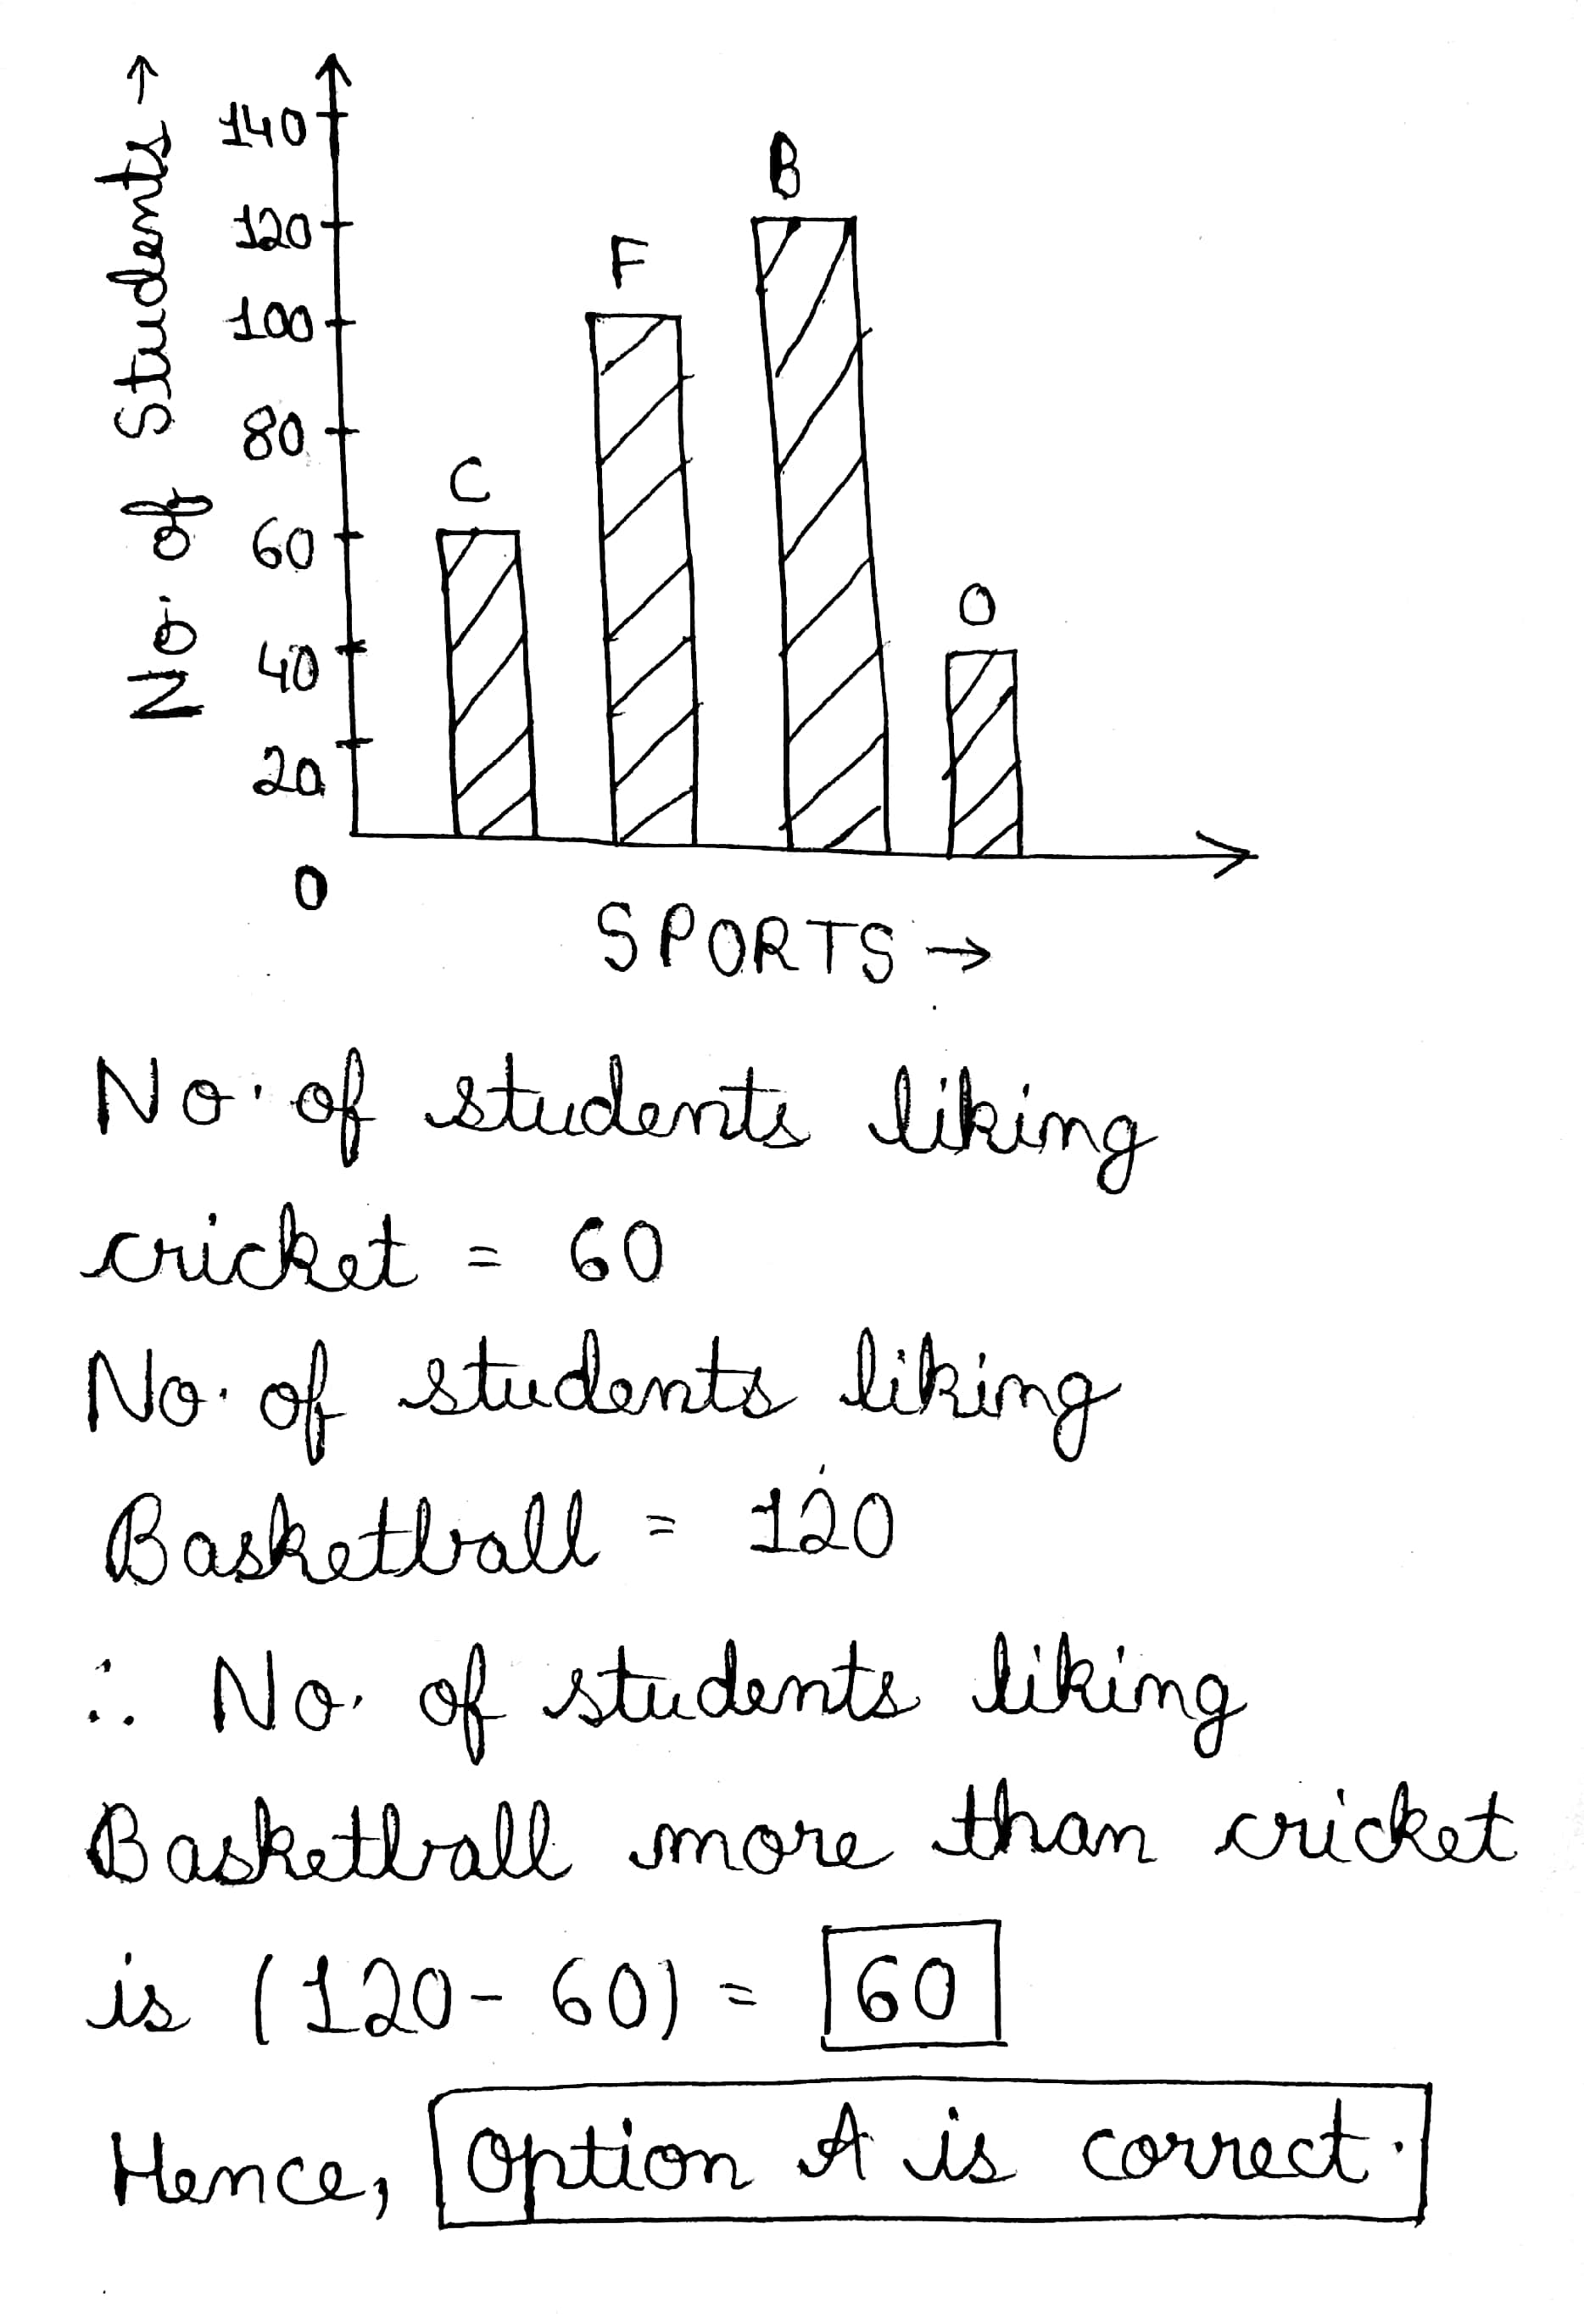 No. of Students →
140
120
100
80
60
40
20
0
C
F
B
O
SPORTS →
No. of students liking
cricket = 60
No. of students liking
Basketball = 120
∴ No. of students liking
Basketball more than cricket
is (120 - 60) = 60
Hence, Option A is correct.